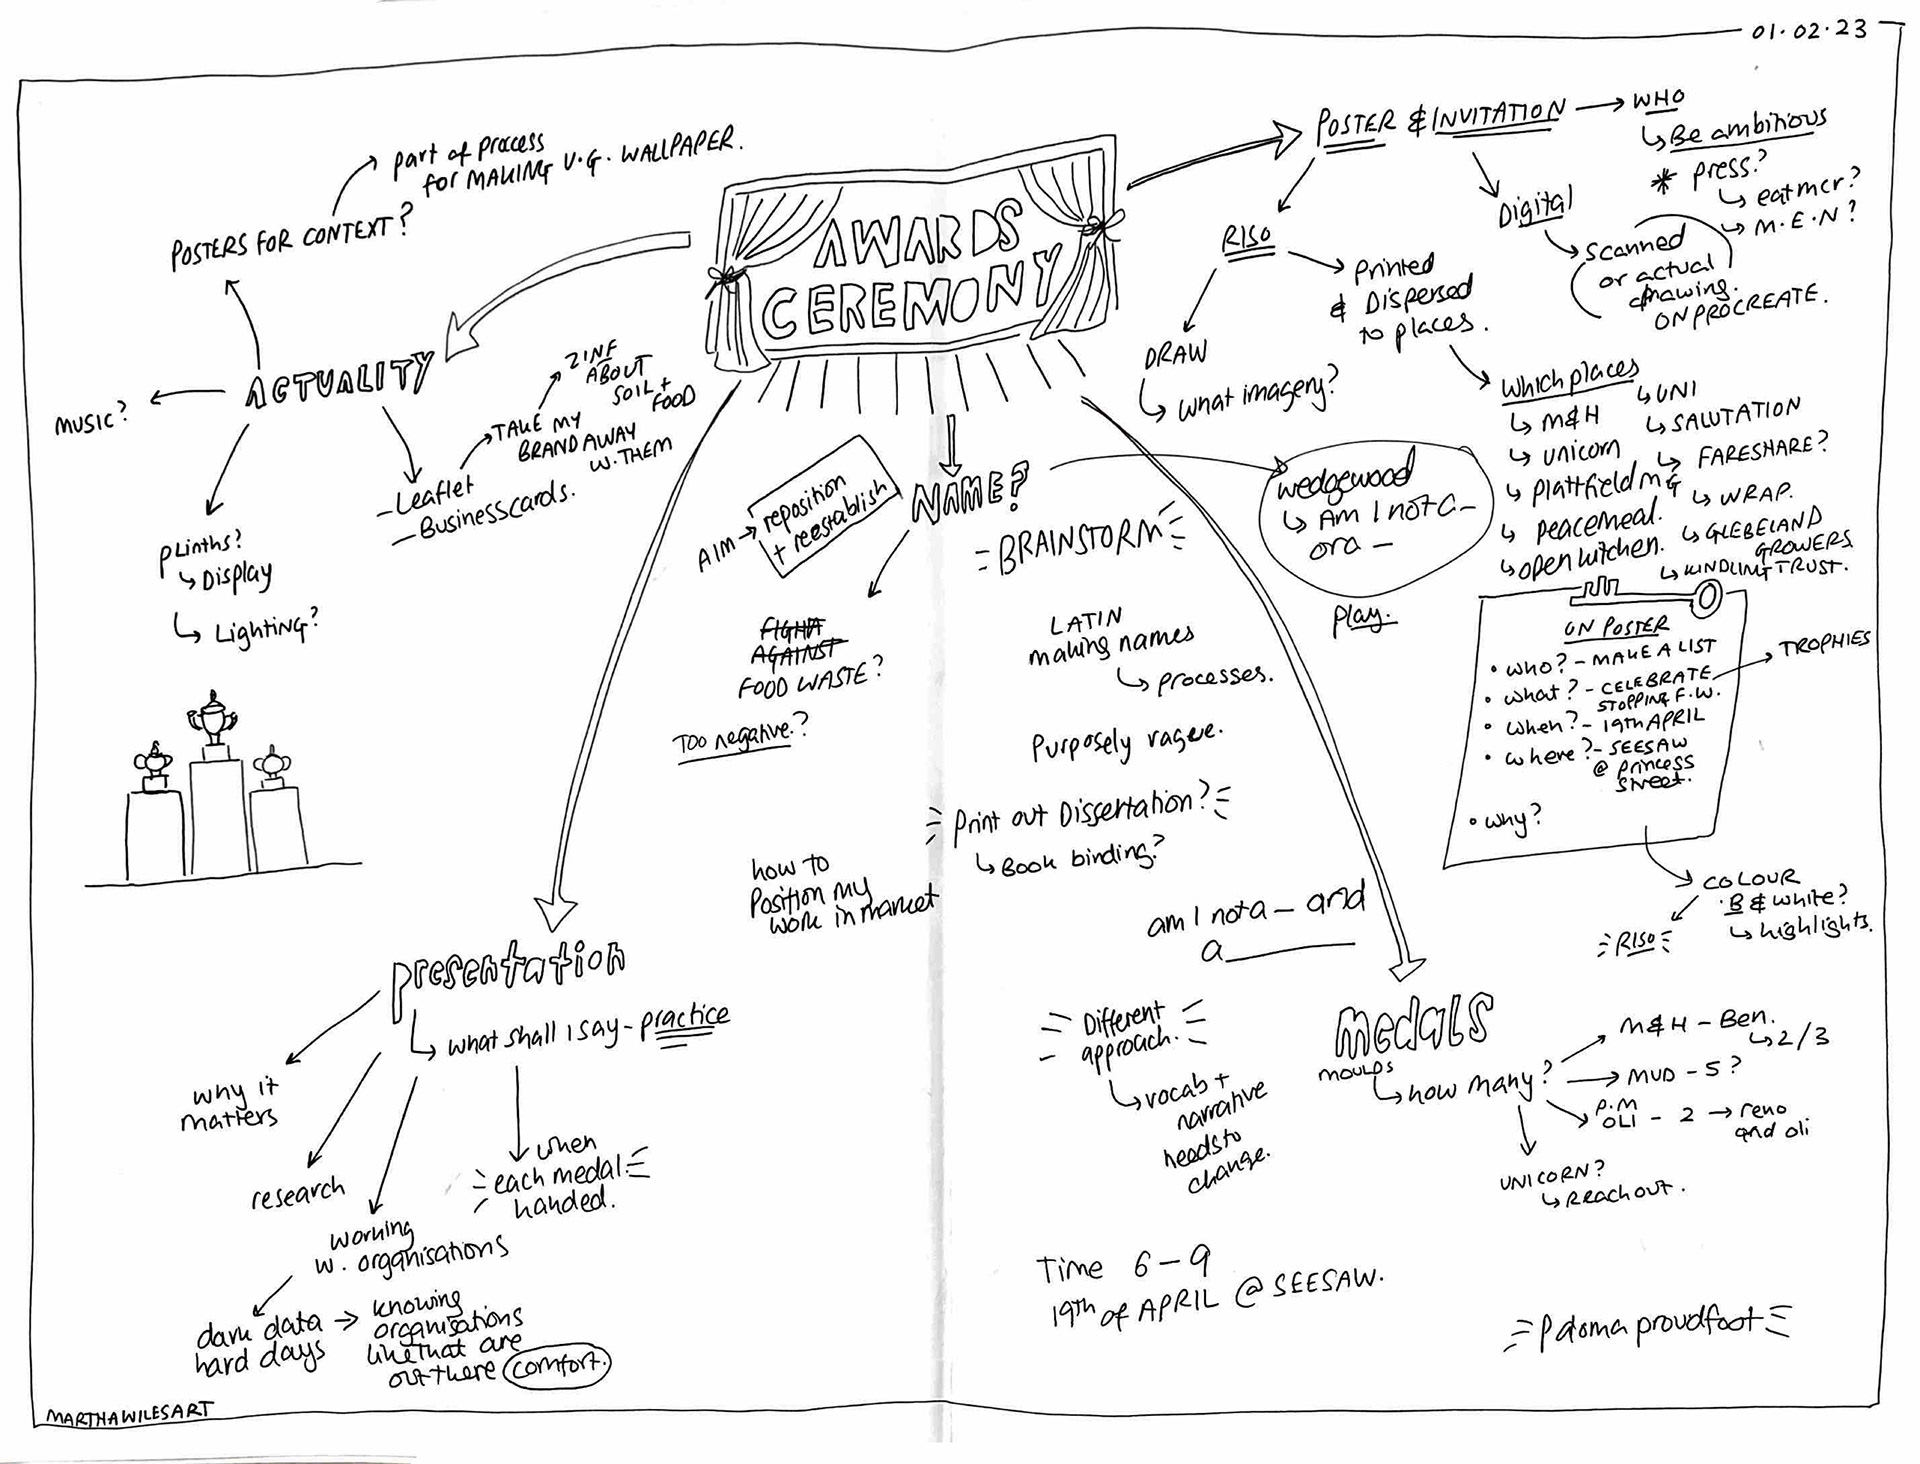 01.02.23
AWARDS
CEREMONY
part of process
for MAKING V.G. WALLPAPER.
POSTERS FOR CONTEXT?
ACTUALITY
MUSIC?
ZINE
ABOUT
SOIL +
FOOD
TAKE MY
BRAND AWAY
W. THEM
- Leaflet
- Business cards.
Plinths?
Display
Lighting?
POSTER & INVITATION
WHO
Be ambitious
* press?
eatmcr?
M.E.N?
Digital
Scanned
or actual
drawing.
ON PROCREATE.
RISO
Printed
& Dispersed
to places.
DRAW
What imagery?
Which places
M&H
unicorn
plattfield MG
peacemeal.
open kitchen.
UNI
SALUTATION
FARESHARE?
WRAP.
GLEBELAND
GROWERS
KINDLING TRUST.
ON POSTER
• who? - MAKE A LIST
• what? - CELEBRATE
STOPPING F.W.
TROPHIES
• when? - 19th APRIL
• where? - SEESAW
@ princess
street.
• why?
COLOUR
B & white?
highlights.
RISO
NAME?
AIM
reposition
+ reestablish
BRAINSTORM
wedgewood
Am I not a _
or a _
play.
FIGHT
AGAINST
FOOD WASTE?
Too negative?
LATIN
making names
processes.
Purposely vague.
Print out Dissertation?
Book binding?
how to
Position my
work in market
am I not a _ and
a _____
Different
approach.
vocab +
narrative
needs to
change.
presentation
what shall I say - practice
why it
matters
research
working
w. organisations
when
each medal
handed.
dark data
hard days
knowing
organisations
like that are
out there comfort.
medals
MOULDS
how many?
M&H - Ben.
2/3
MUD - 5?
P.M
OLI - 2
reno
and oli
UNICORN?
Reach out.
Time 6 - 9
19th of APRIL @ SEESAW.
Paloma proudfoot
MARTHAWILESART